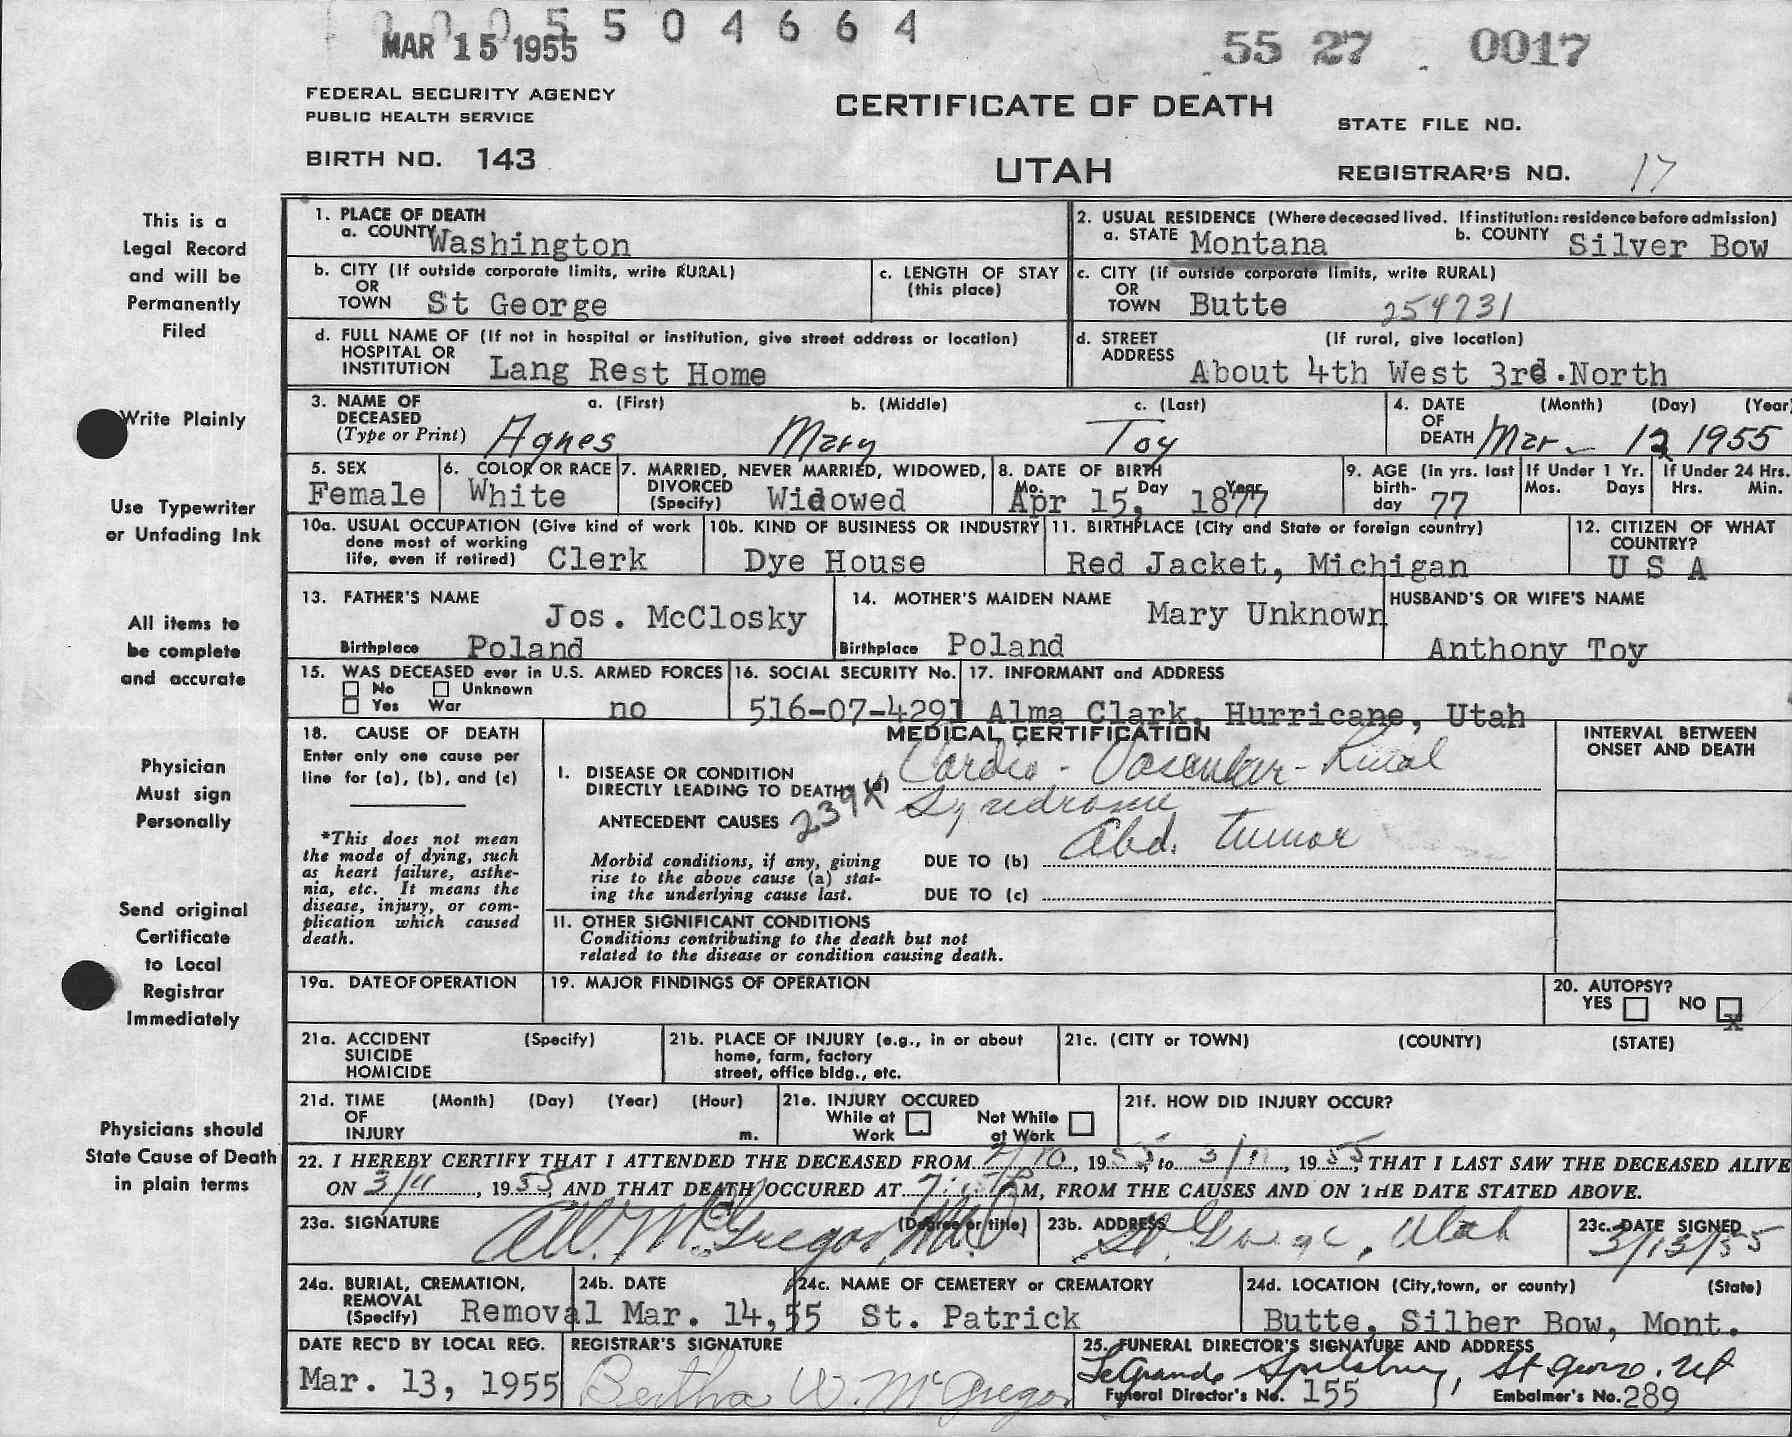 0005504664
MAR 15 1955
55 27 0017
FEDERAL SECURITY AGENCY
PUBLIC HEALTH SERVICE
CERTIFICATE OF DEATH
STATE FILE NO.
BIRTH NO. 143
UTAH
REGISTRAR'S NO. 17
This is a
Legal Record
and will be
Permanently
Filed
Write Plainly
Use Typewriter
or Unfading Ink
All items to
be complete
and accurate
Physician
Must sign
Personally
Send original
Certificate
to Local
Registrar
Immediately
Physicians should
State Cause of Death
in plain terms
1. PLACE OF DEATH
a. COUNTY Washington
2. USUAL RESIDENCE (Where deceased lived. If institution: residence before admission)
a. STATE Montana b. COUNTY Silver Bow
b. CITY (If outside corporate limits, write RURAL)
OR
TOWN St George
c. LENGTH OF STAY
(this place)
c. CITY (if outside corporate limits, write RURAL)
OR
TOWN Butte 254731
d. FULL NAME OF (If not in hospital or institution, give street address or location)
HOSPITAL OR
INSTITUTION Lang Rest Home
d. STREET (If rural, give location)
ADDRESS About 4th West 3rd.North
3. NAME OF a. (First) b. (Middle) c. (Last)
DECEASED
(Type or Print) Agnes Mary Toy
4. DATE (Month) (Day) (Year)
OF
DEATH Mar 12 1955
5. SEX
Female
6. COLOR OR RACE
White
7. MARRIED, NEVER MARRIED, WIDOWED,
DIVORCED
(Specify) Widowed
8. DATE OF BIRTH
Mo. Day Year
Apr 15, 1877
9. AGE (In yrs. last
birth-
day 77
If Under 1 Yr.
Mos. Days
If Under 24 Hrs.
Hrs. Min.
10a. USUAL OCCUPATION (Give kind of work
done most of working
life, even if retired) Clerk
10b. KIND OF BUSINESS OR INDUSTRY
Dye House
11. BIRTHPLACE (City and State or foreign country)
Red Jacket, Michigan
12. CITIZEN OF WHAT
COUNTRY?
U S A
13. FATHER'S NAME
Jos. McClosky
Birthplace Poland
14. MOTHER'S MAIDEN NAME
Mary Unknown
Birthplace Poland
HUSBAND'S OR WIFE'S NAME
Anthony Toy
15. WAS DECEASED ever in U.S. ARMED FORCES
No Unknown
Yes War no
16. SOCIAL SECURITY No.
516-07-4291
17. INFORMANT and ADDRESS
Alma Clark, Hurricane, Utah
18. CAUSE OF DEATH
Enter only one cause per
line for (a), (b), and (c)
*This does not mean
the mode of dying, such
as heart failure, asthe-
nia, etc. It means the
disease, injury, or com-
plication which caused
death.
MEDICAL CERTIFICATION
I. DISEASE OR CONDITION
DIRECTLY LEADING TO DEATH (a) Cardio-Vascular-Renal
Syndrome
239X
ANTECEDENT CAUSES
Morbid conditions, if any, giving
rise to the above cause (a) stat-
ing the underlying cause last.
DUE TO (b) Abd. tumor
DUE TO (c)
II. OTHER SIGNIFICANT CONDITIONS
Conditions contributing to the death but not
related to the disease or condition causing death.
INTERVAL BETWEEN
ONSET AND DEATH
19a. DATE OF OPERATION
19. MAJOR FINDINGS OF OPERATION
20. AUTOPSY?
YES NO X
21a. ACCIDENT (Specify)
SUICIDE
HOMICIDE
21b. PLACE OF INJURY (e.g., in or about
home, farm, factory
street, office bldg., etc.
21c. (CITY or TOWN) (COUNTY) (STATE)
21d. TIME (Month) (Day) (Year) (Hour)
OF
INJURY m.
21e. INJURY OCCURED
While at Not While
Work at Work
21f. HOW DID INJURY OCCUR?
22. I HEREBY CERTIFY THAT I ATTENDED THE DECEASED FROM 1955, to 3/11, 1955, THAT I LAST SAW THE DECEASED ALIVE
ON 3/11, 1955, AND THAT DEATH OCCURED AT M, FROM THE CAUSES AND ON THE DATE STATED ABOVE.
23a. SIGNATURE (Degree or title)
McGregor, M.D.
23b. ADDRESS
St. George, Utah
23c. DATE SIGNED
3/13/55
24a. BURIAL, CREMATION,
REMOVAL
(Specify) Removal
24b. DATE
Mar. 14,55
24c. NAME OF CEMETERY or CREMATORY
St. Patrick
24d. LOCATION (City, town, or county) (State)
Butte, Silber Bow, Mont.
DATE REC'D BY LOCAL REG.
Mar. 13, 1955
REGISTRAR'S SIGNATURE
Bertha W. McGregor
25. FUNERAL DIRECTOR'S SIGNATURE AND ADDRESS
LeGrande Spilsbury, St George. Ut
Funeral Director's No. 155 Embalmer's No. 289